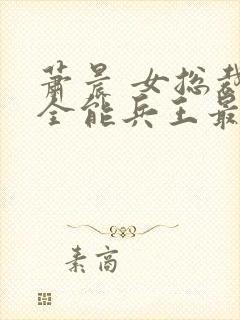 萧晨 女总裁
全能兵王最
素高